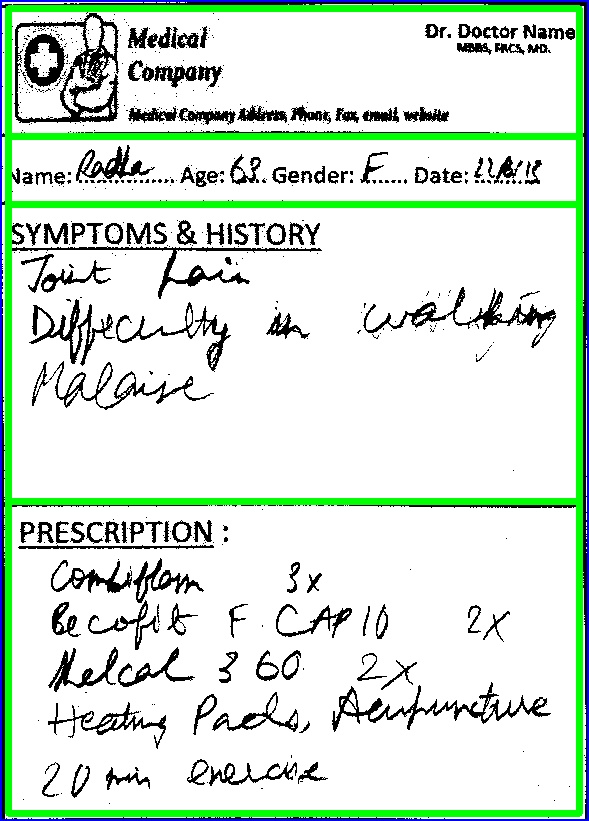 Medical
Company
Dr. Doctor Name
MBBS, FACS, MD.
Medical Company Address, Phone, Fax, email, website
Name: Radha Age: 63 Gender: F Date:
SYMPTOMS & HISTORY
Joint Pain
Diffeculty in walking
Malaise
PRESCRIPTION :
Combiflam 3x
Becofit F CAP 10 2X
Melcal 360 2X
Heating Pads, Acupuncture
20 min exercise